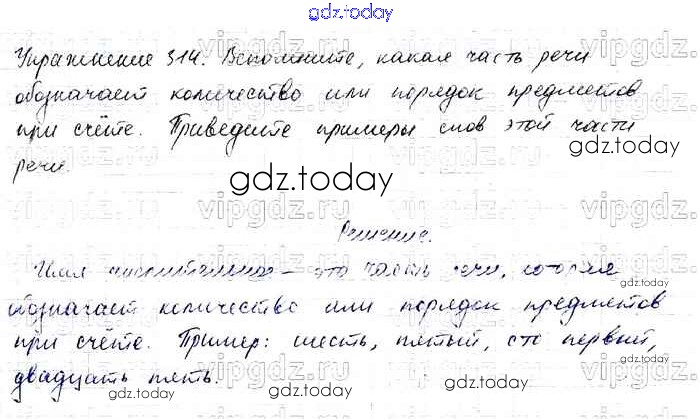 gdz.today
Упражнение 314. Вспомните, какая часть речи
обозначает количество или порядок предметов
при счёте. Приведите примеры слов этой части
речи.
gdz.today
gdz.today
vipgdz.ru
Решение.
Имя числительное – это часть речи, которая
обозначает количество или порядок предметов
при счёте. Пример: шесть, пятый, сто первый,
двадцать пять.
gdz.today
gdz.today